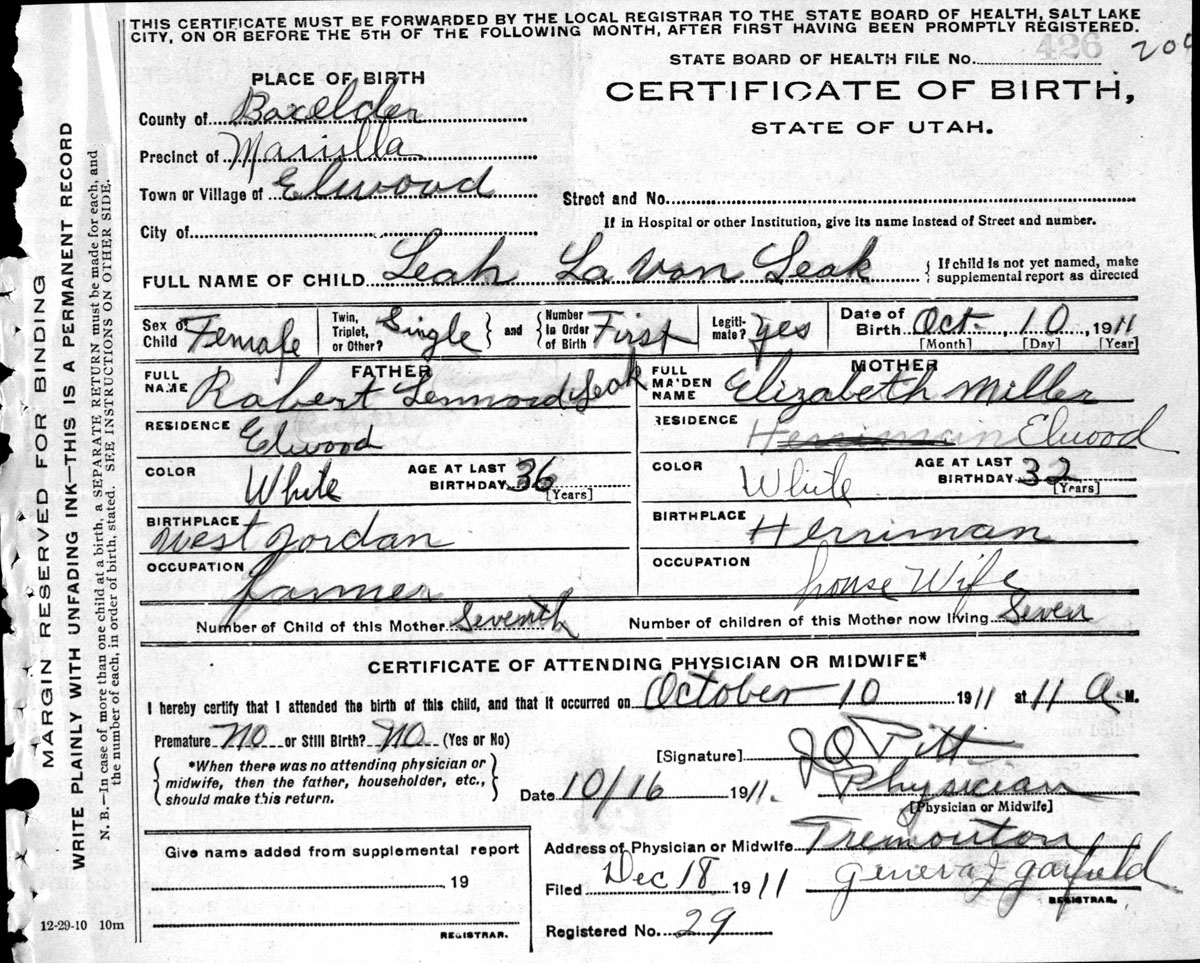 THIS CERTIFICATE MUST BE FORWARDED BY THE LOCAL REGISTRAR TO THE STATE BOARD OF HEALTH, SALT LAKE
CITY, ON OR BEFORE THE 5TH OF THE FOLLOWING MONTH, AFTER FIRST HAVING BEEN PROMPTLY REGISTERED.
426
STATE BOARD OF HEALTH FILE No.
PLACE OF BIRTH
CERTIFICATE OF BIRTH,
STATE OF UTAH.
County of Boxelder
Precinct of
Town or Village of Elwood
Street and No.
If in Hospital or other Institution, give its name instead of Street and number.
City of
FULL NAME OF CHILD Leah La Von Leak
If child is not yet named, make
supplemental report as directed
Sex of Child Female
Twin, Triplet, or Other? Single
and
Number In Order of Birth First
Legitimate? yes
Date of Birth Oct. 10, 1911
[Month] [Day] [Year]
FATHER
FULL NAME Robert Leak
RESIDENCE Elwood
COLOR White
AGE AT LAST BIRTHDAY 36
[Years]
BIRTHPLACE West Jordan
OCCUPATION farmer
MOTHER
FULL MAIDEN NAME Elizabeth Miller
RESIDENCE Herriman Elwood
COLOR White
AGE AT LAST BIRTHDAY 32
[Years]
BIRTHPLACE Herriman
OCCUPATION house Wife
Number of Child of this Mother Seventh
Number of children of this Mother now living Seven
CERTIFICATE OF ATTENDING PHYSICIAN OR MIDWIFE*
I hereby certify that I attended the birth of this child, and that it occurred on October 10 1911 at 11 a M.
Premature No or Still Birth? No (Yes or No)
*When there was no attending physician or
midwife, then the father, householder, etc.,
should make this return.
[Signature] Pitt
Physician
[Physician or Midwife]
Date 10/16 1911.
Address of Physician or Midwife Tremonton
Filed Dec 18 1911
Geneva J Garfield
REGISTRAR.
Registered No. 29
Give name added from supplemental report
19
REGISTRAR.
12-29-10 10m
MARGIN RESERVED FOR BINDING
WRITE PLAINLY WITH UNFADING INK—THIS IS A PERMANENT RECORD
N. B.—In case of more than one child at a birth, a SEPARATE RETURN must be made for each, and
the number of each, in order of birth, stated. SEE INSTRUCTIONS ON OTHER SIDE.